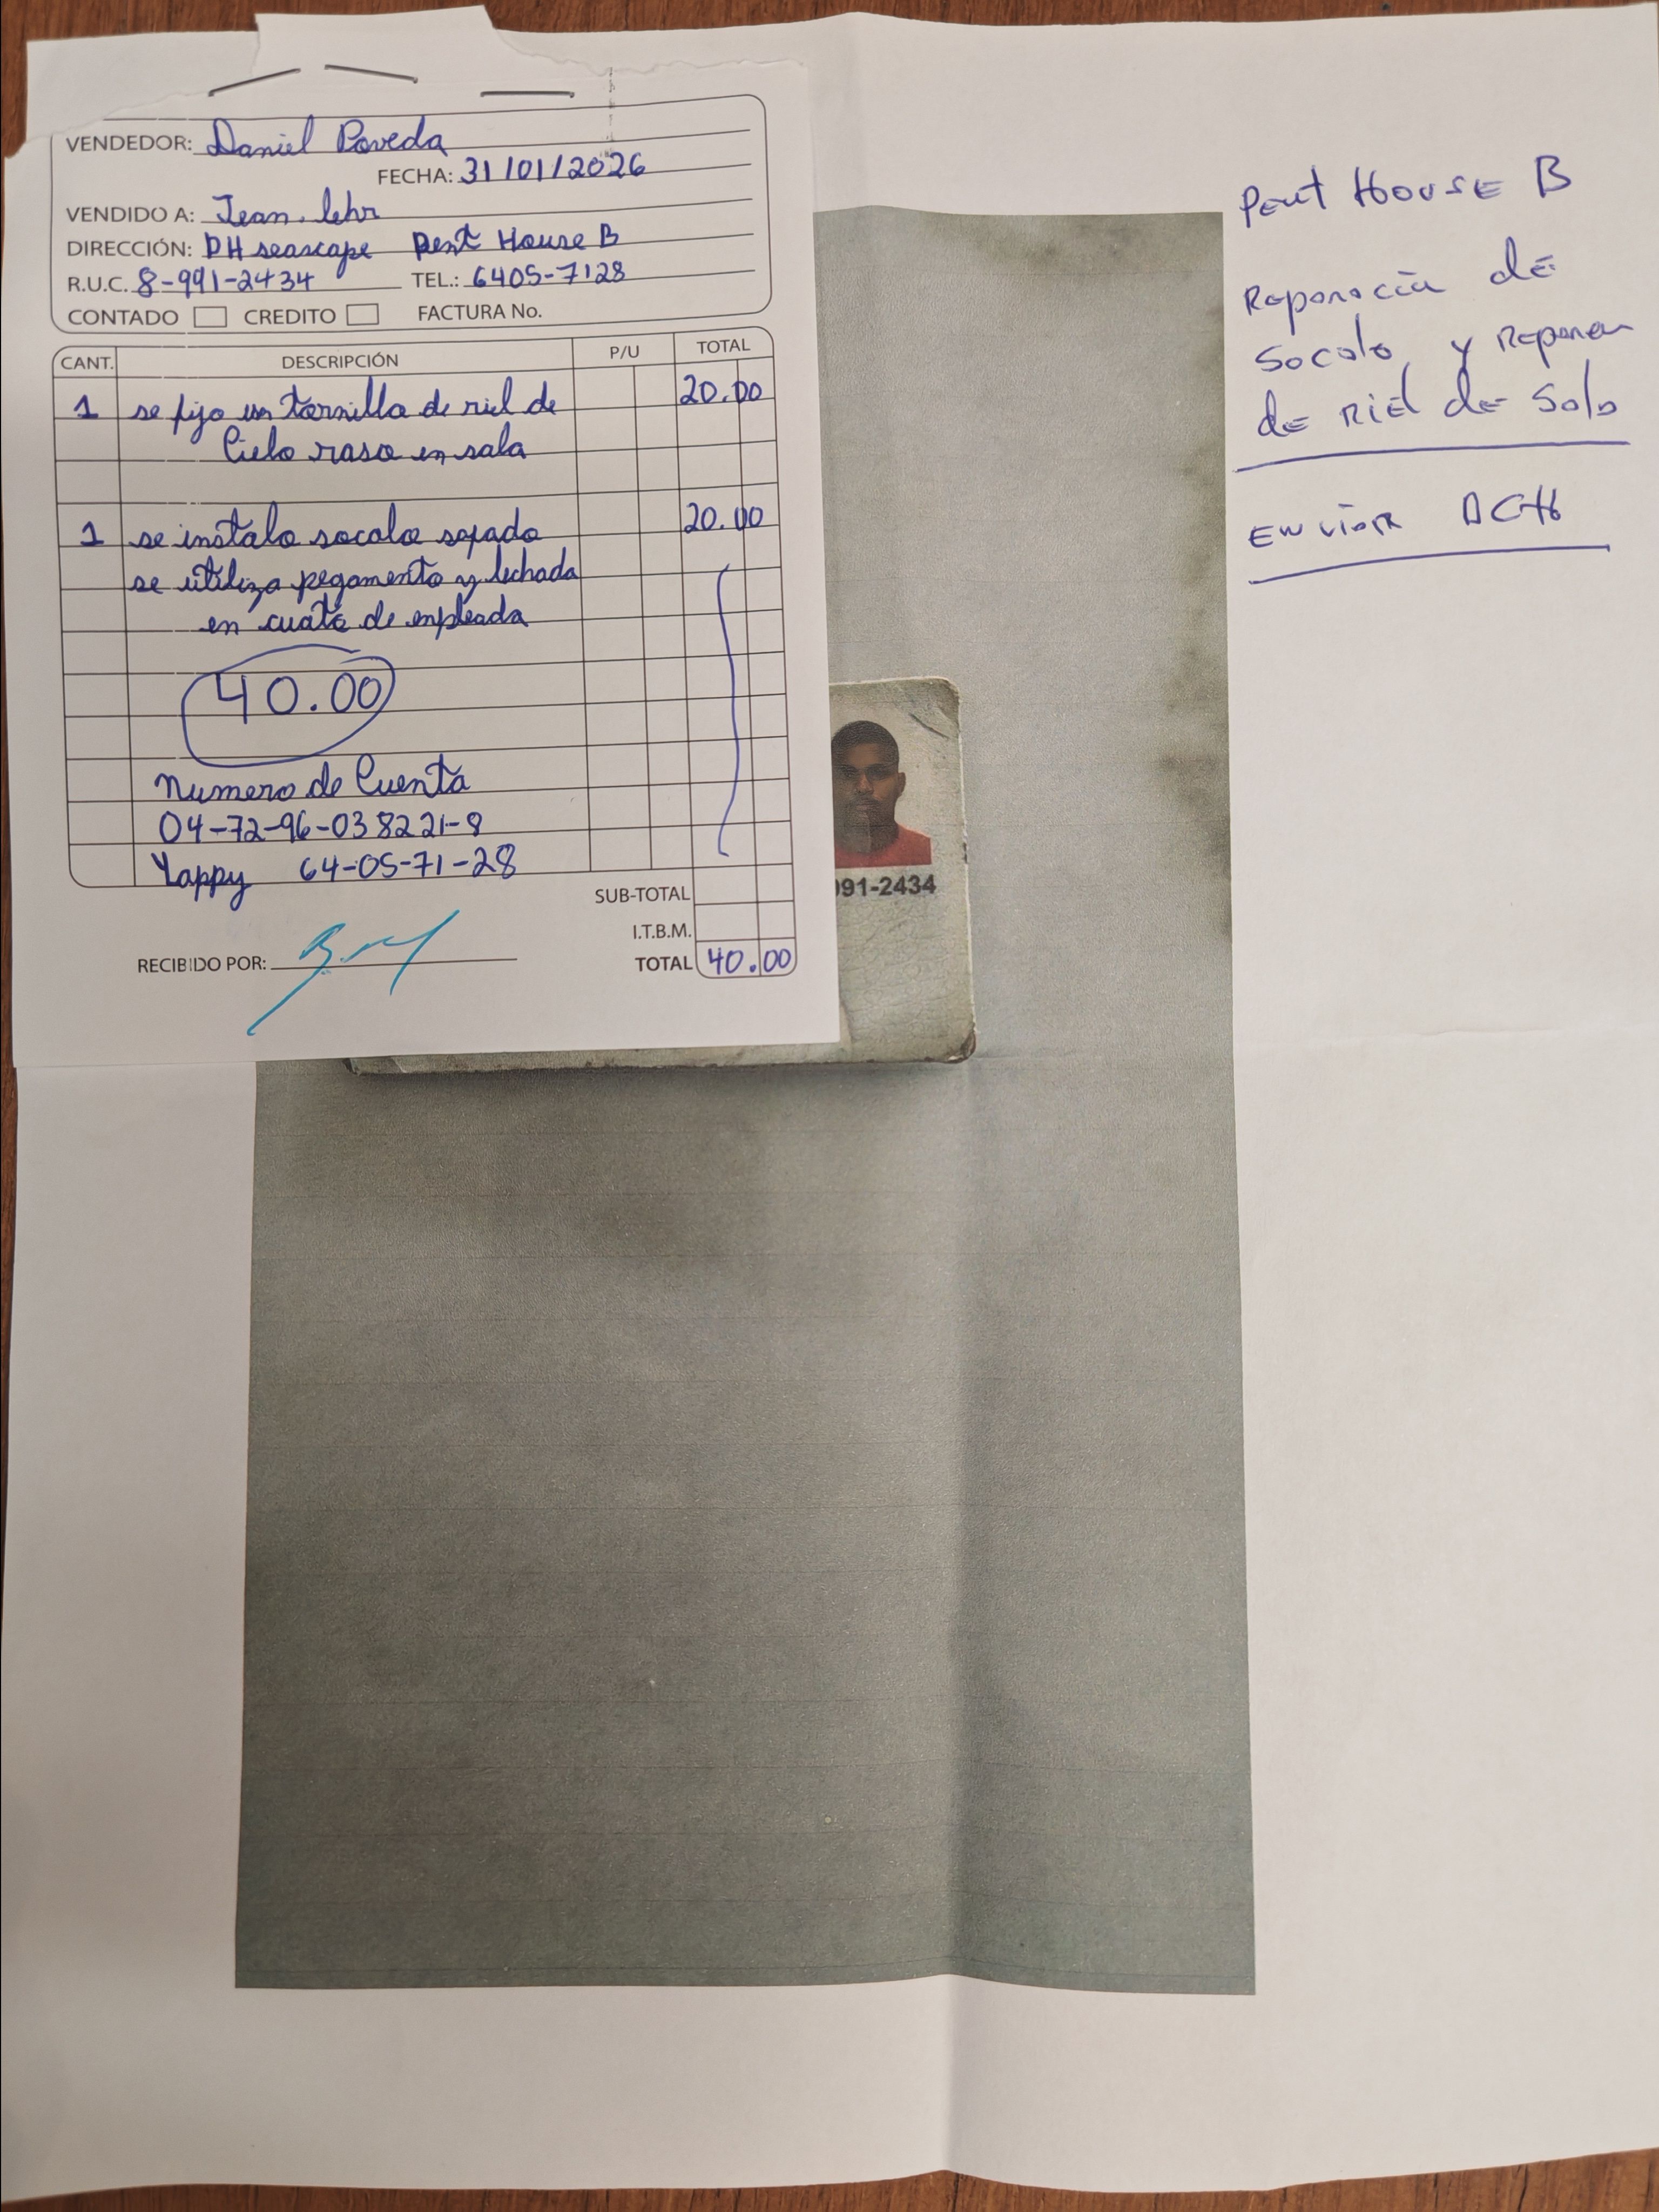 VENDEDOR: Daniel Poveda
FECHA: 31/01/2026
VENDIDO A: Jean. lehr
DIRECCIÓN: PH seascape Pent House B
R.U.C. 8-991-2434 TEL.: 6405-7128
CONTADO CREDITO FACTURA No.
CANT. DESCRIPCIÓN P/U TOTAL
1 se fijo un tornillo de riel de 20.00
Cielo raso en sala
1 se instalo socalo sopado 20.00
se utiliza pegamento y lechada
en cuato de empleada
40.00
Numero de Cuenta
04-72-96-038221-8
Yappy 64-05-71-28
SUB-TOTAL
I.T.B.M.
RECIBIDO POR: TOTAL 40.00
991-2434
Pent House B
Reparacia de
Socalo y Reparar
de Riel de Sala
Enviar ACH